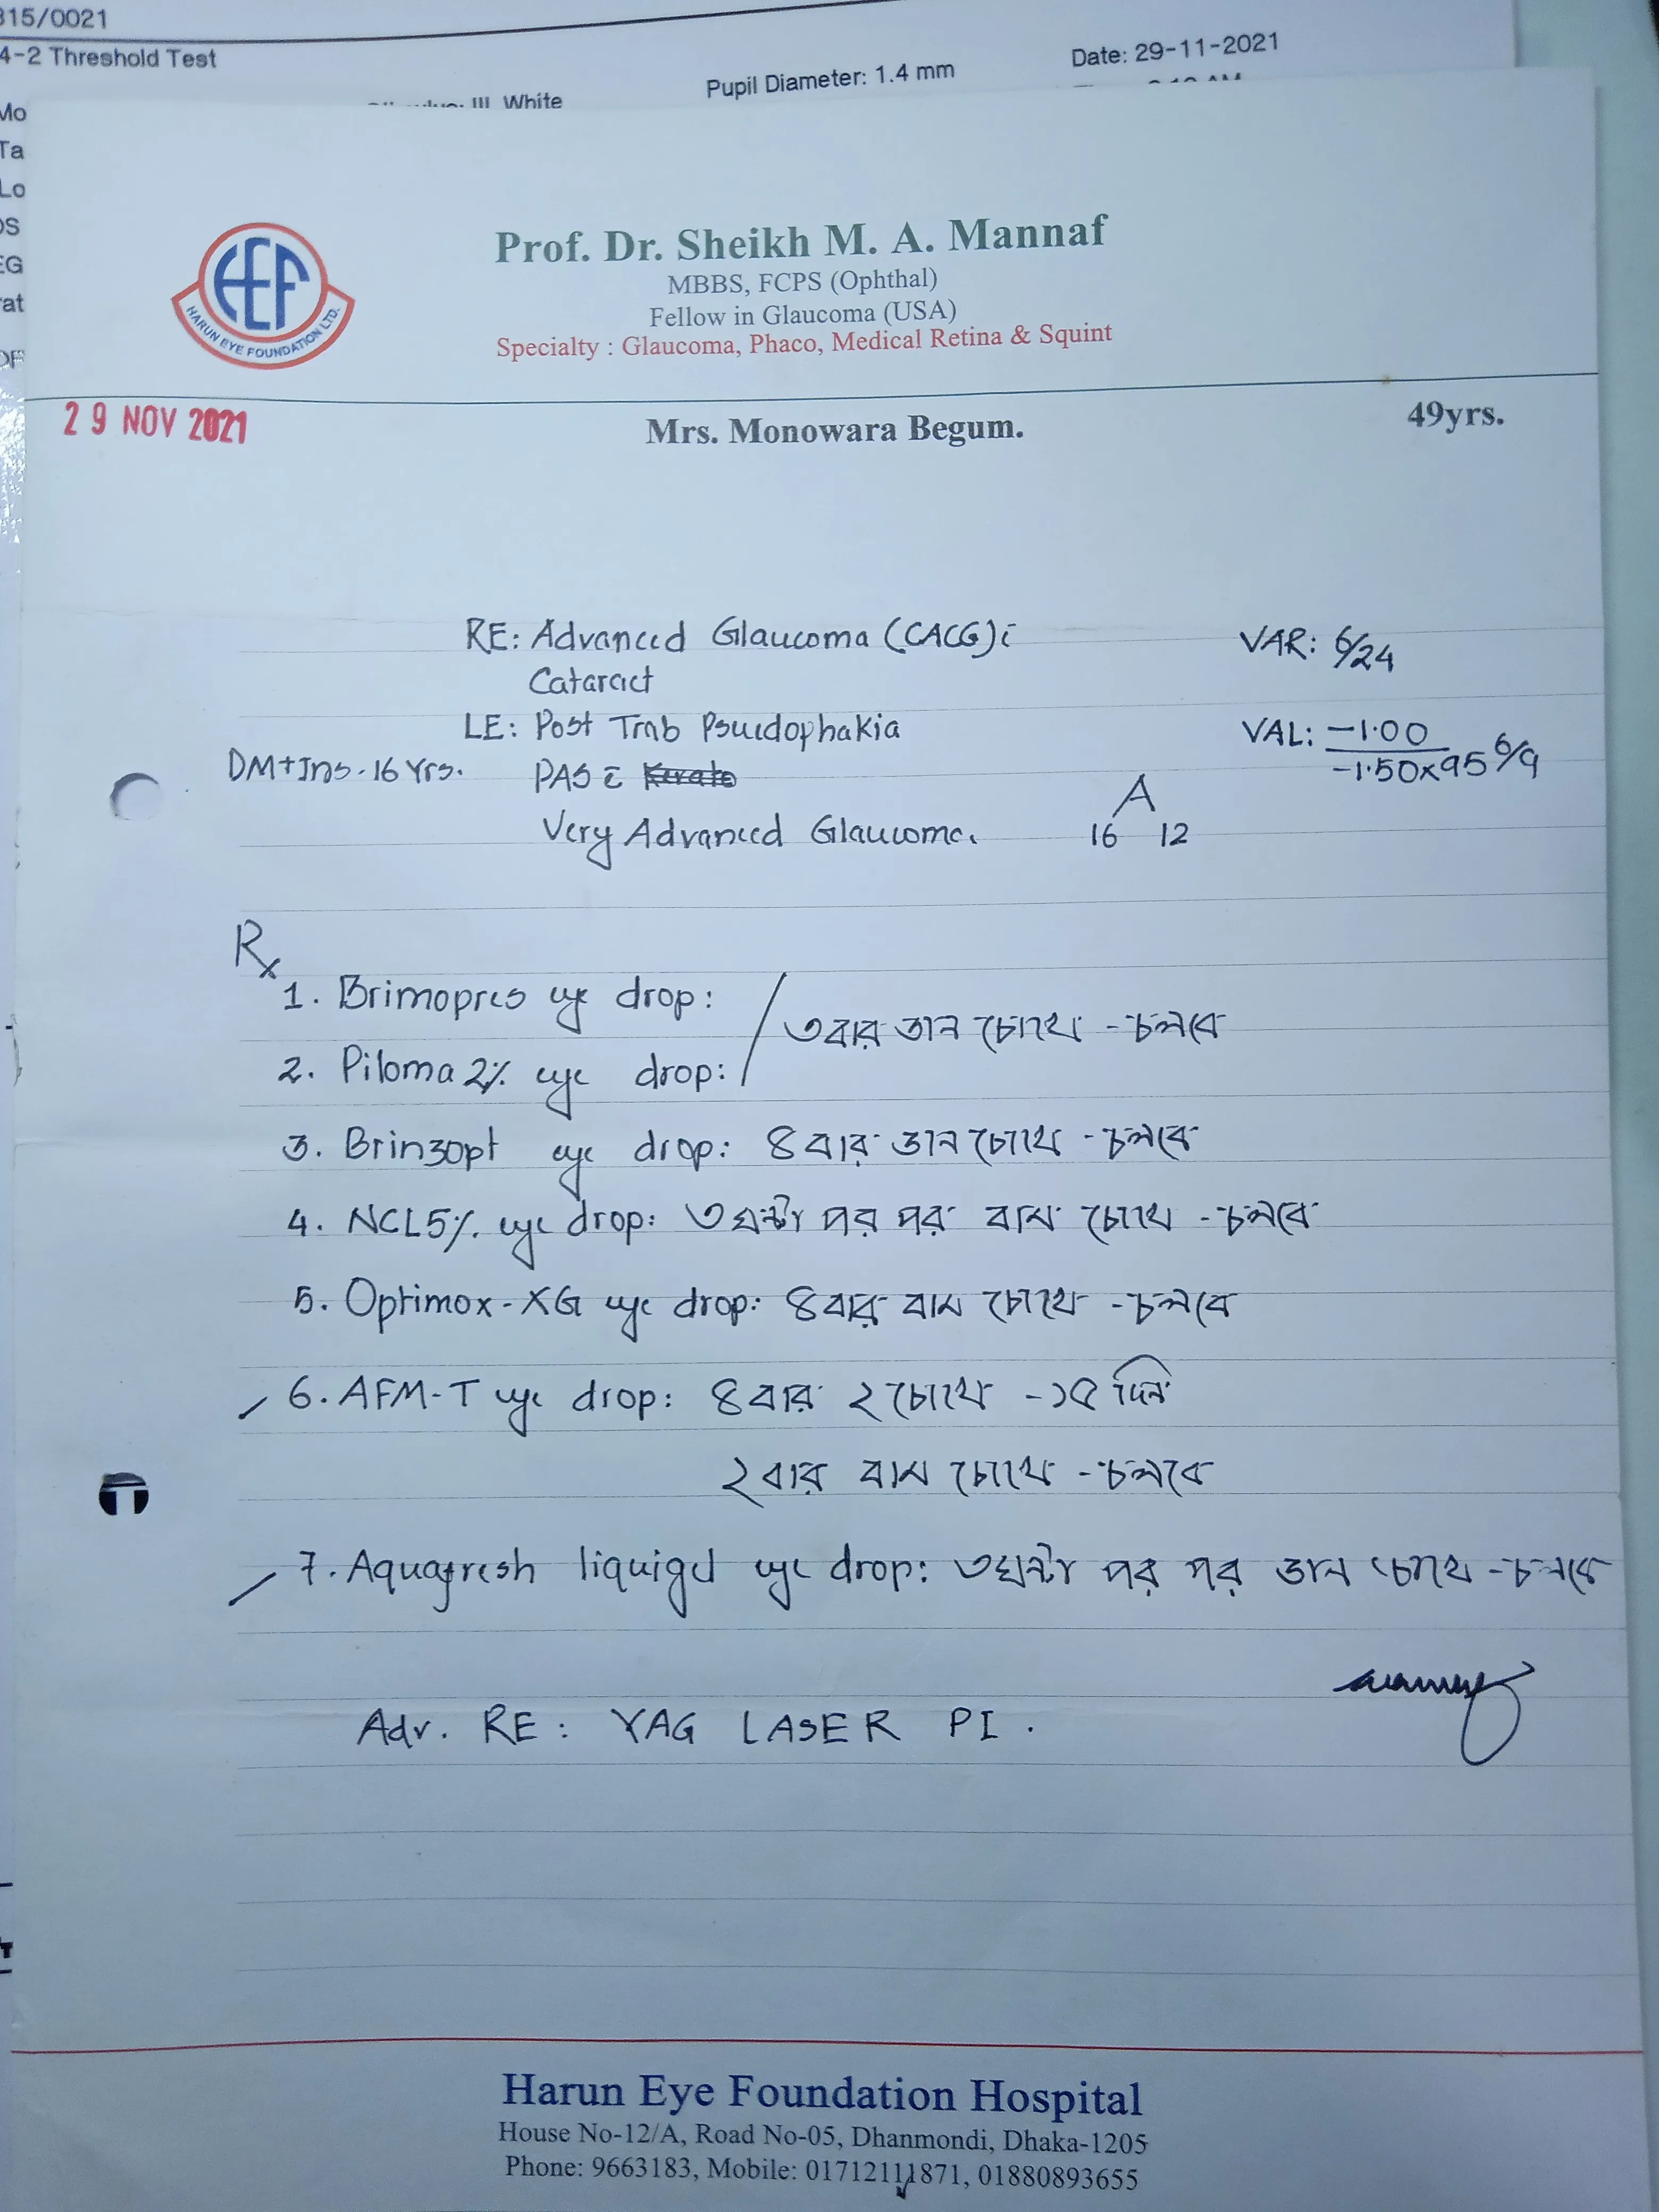 315/0021
4-2 Threshold Test
Pupil Diameter: 1.4 mm
Date: 29-11-2021
III, White
Mo
Ta
Lo
OS
EG
rat
HEF
HARUN EYE FOUNDATION LTD.
Prof. Dr. Sheikh M. A. Mannaf
MBBS, FCPS (Ophthal)
Fellow in Glaucoma (USA)
Specialty : Glaucoma, Phaco, Medical Retina & Squint
29 NOV 2021
Mrs. Monowara Begum.
49yrs.
RE: Advanced Glaucoma (CACG) c̄
VAR: 6/24
Cataract
LE: Post Trab Pseudophakia
VAL: -1.00
-1.50x95 6/9
DM+Ins. 16 Yrs.
PAS c̄
A
16 12
Very Advanced Glaucoma.
Rx
1. Brimopres eye drop:
2. Piloma 2% eye drop:
/ ৩ বার ডান চোখে - চলবে
3. Brinzopt eye drop: ৪ বার ডান চোখে - চলবে
4. NCL 5% eye drop: ৩ ঘন্টা পর পর বাম চোখে - চলবে
5. Optimox-XG eye drop: ৪ বার বাম চোখে - চলবে
6. AFM-T eye drop: ৪ বার ২ চোখে - ১৫ দিন
২ বার বাম চোখে - চলবে
7. Aquafresh liquigel eye drop: ৩ ঘন্টা পর পর ডান চোখে - চলবে
Adv. RE: YAG LASER PI.
Harun Eye Foundation Hospital
House No-12/A, Road No-05, Dhanmondi, Dhaka-1205
Phone: 9663183, Mobile: 01712111871, 01880893655